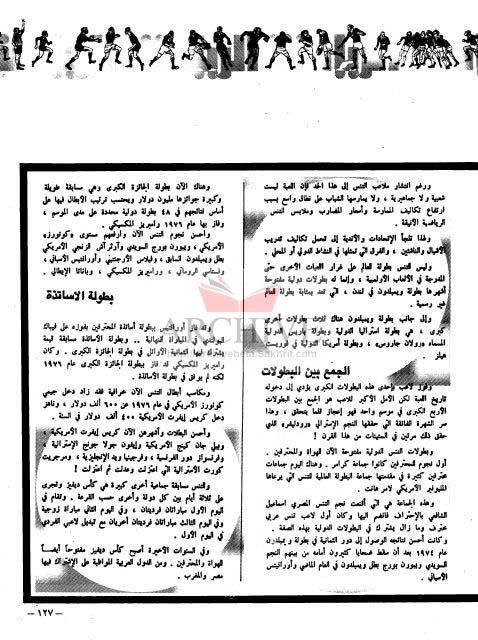 ورغم انتشار ملاعب التنس إلى هذا الحد فإن اللعبة ليست
شعبية ولا جماهيرية ، ولا يمارسها الشباب على نطاق واسع بسبب
ارتفاع تكاليف الممارسة وأسعار المضارب وملابس التنس
الرياضية الأنيقة .
ولهذا تلجأ الإتحادات والأندية إلى تحمل تكاليف تدريب
الأشبال والناشئين ، والفرق التي تمثلها في النشاط الدولي أو المحلي .
وليس للتنس بطولة العالم على غرار اللعبات الأخرى حتى
المدرجة في الألعاب الأولمبية ، وإنما له بطولات دولية مفتوحة
أشهرها بطولة ويمبلدون في لندن ، التي تعد بمثابة بطولة عالم
غير رسمية .
وإلى جانب بطولة ويمبلدون هناك ثلاث بطولات أخرى
كبرى ، هي بطولة استراليا الدولية وبطولة باريس الدولية
المسماه ورولان جاروس، وبطولة أمريكا الدولية في فوريست
هيلز .
الجمع بين البطولات
وفوز لاعب بإحدى هذه البطولات الكبرى يؤدي إلى دخوله
تاريخ اللعبة لكن الأمل الأكبر للاعب هو الجمع بين البطولات
الأربع الكبرى في موسم واحد فهو إعجاز قلما يتحقق ، وهذا
سر الشهرة الفائقة التي حققها النجم الإسترالي ورودليفره الذي
حقق ذلك مرتين في الستينات من هذا القرن !
وبطولات التنس الدولية مفتوحة الآن للهواة والمحترفين .
أول نجوم المحترفين كانوا جماعة كرامر . وهناك اليوم جماعات
محترفين كثيرة في مقدمتها جماعة البطولة العالمية للتنس التي يرعاها
المليونير الأمريكي لامر هانت .
وهذه الجماعة هي التي أقنعت نجم التنس المصري اسماعيل
الشافعي بالإحتراف فانضم اليها وكان أول لاعب تنس عربي
محترف وما زال يشترك في البطولات الدولية بهذه الصفة .
وكانت أحسن نتائجه الوصول إلى دور الثمانية في بطولة ويمبلدون
عام ١٩٧٤ بعد أن سقط ضحايا كثيرون أمامه من بينهم النجم
السويدي وبيورن بورج بطل ويمبلدون في العام الماضي وأورانتيس
الأسباني .
وهناك الآن بطولة الجائزة الكبرى وهي مسابقة طويلة
وكبيرة جوائزها مليون دولار ويحتسب ترتيب الأبطال فيها على
أساس نتائجهم في ٤٨ بطولة دولية محددة على مدى الموسم ،
وفاز بها عام ١٩٧٦ وراميريز المكسيكي .
وأحسن نجوم التنس الآن وأرفعهم مستوى وكونورز،
الأمريكي ، وبيورن بورج السويدي وآرثر آش الزنجي الأمريكي
بطل ويمبلدون السابق ، وفيلاس الأرجنتيني وأورانتيس الأسباني ،
ونستاس الروماني ، وراميريز المكسيكي ، وباناتا الإيطالي .
بطولة الاساتذة
ولقد فاز أورانتيس ببطولة أساتذة المحترفين بفوزه على فيباك
البولندي في المباراة النهائية .. وبطولة الأساتذة مسابقة قيمة
يشترك فيها الثمانية الأوائل في بطولة الجائزة الكبرى . وكان
راميريز المكسيكي قد فاز ببطولة الجائزة الكبرى عام ١٩٧٦
لكنه لم يوفق في بطولة الأساتذة .
ومكاسب أبطال التنس الآن خرافية فقد زاد دخل جيمي
كونورز الأمريكي في عام ١٩٧٦ عن ٦٠٠ ألف دولار ، وناهز
دخل كريس إيفرت الأمريكية ٤٠٠ ألف دولار في السنة .
وأحسن البطلات وأشهرهن الآن كريس إيفرت الأمريكية ،
وبيلي جان كينج الأمريكية وإيفون جولا جونج الإسترالية ،
وفرنسواز دور الفرنسية ، وفرجينيا ويد الإنجليزية ، ومرجريت
كورت الاسترالية التي اعتزلت وعدلت ثم اعتزلت !
وللتنس مسابقة جماعية أخرى هي كأس ديفيز وتجرى
على ثلاثة أيام بين كل دولة وأخرى حسب القرعة . وتقام في
اليوم الأول مباراتان فرديتان ، وفي اليوم الثاني مباراة زوجية
وفي اليوم الثالث مباراتان فرديتان أخريان مع تبديل لاعبي الفردي
في اليوم الأول .
وفي السنوات الأخيرة أصبح كأس ديفيز مفتوحاً أيضاً
للهواة والمحترفين . ومن الدول العربية المواظبة على الإشتراك فيها
مصر والمغرب .
— ١٢٧ —